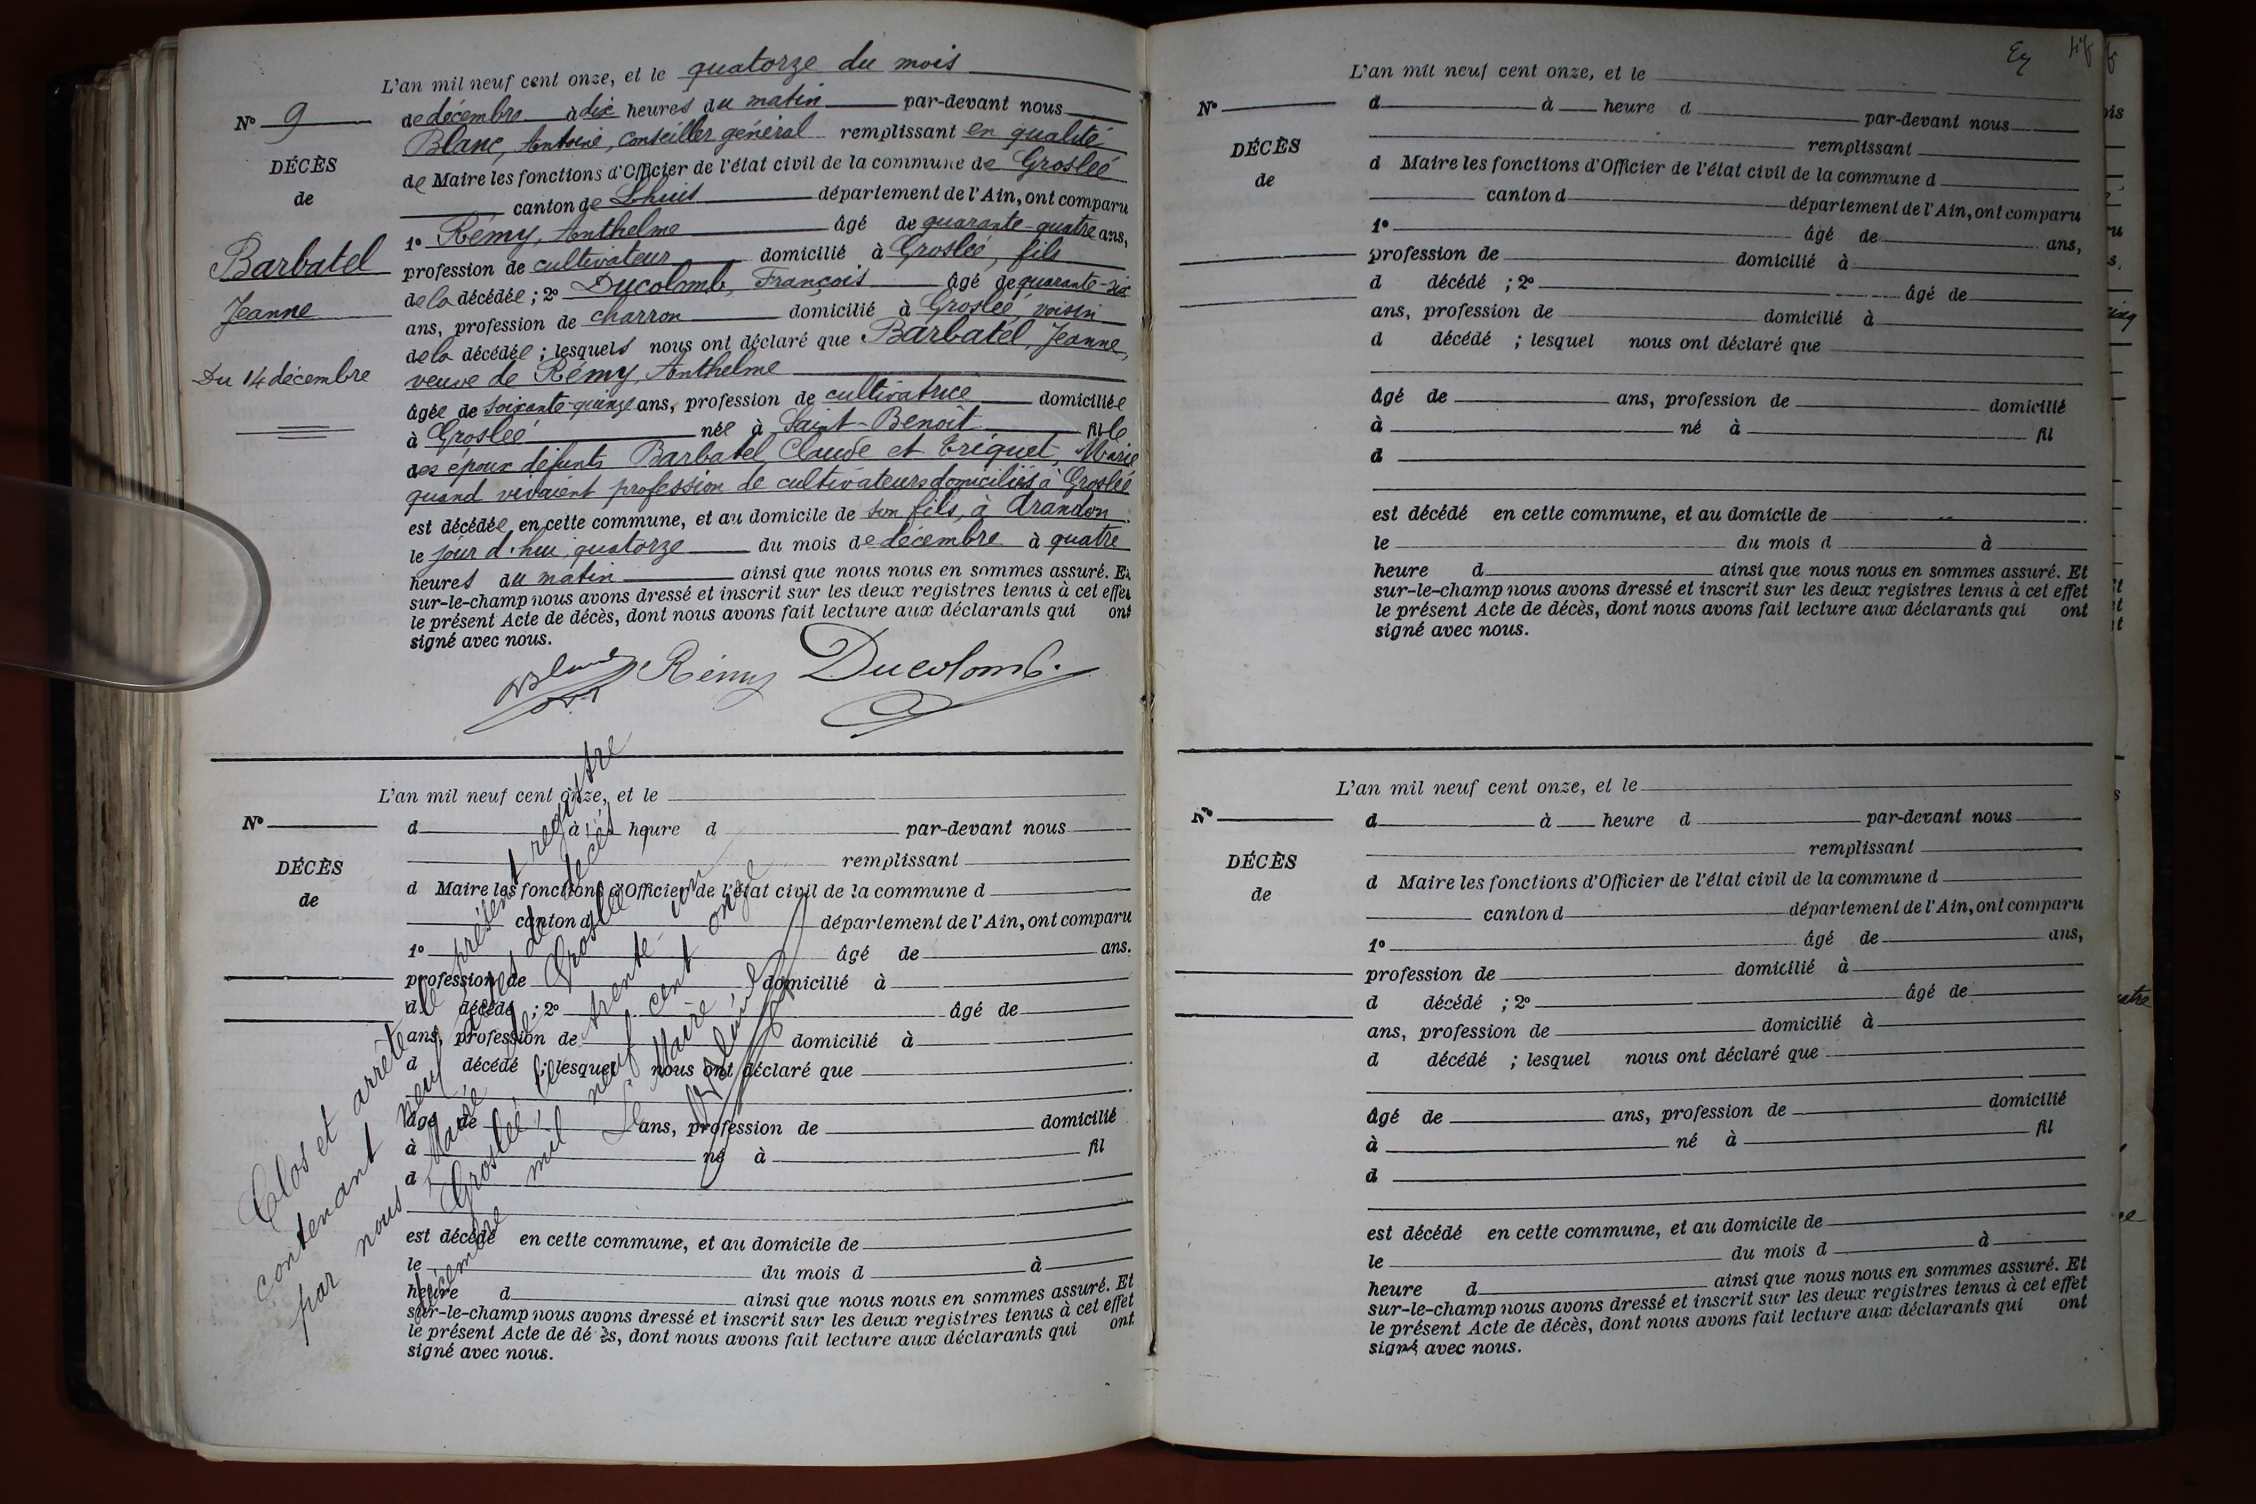 L'an mil neuf cent onze, et le quatorze du mois
N° 9
de décembre à dix heures du matin par-devant nous
Blanc, Antoine, conseiller général remplissant en qualité
DÉCÈS
de Maire les fonctions d'Officier de l'état civil de la commune de Groslée
de
canton de Lhuis département de l'Ain, ont comparu
1° Rémy, Anthelme âgé de quarante-quatre ans,
Barbatel
profession de cultivateur domicilié à Groslée, fils
de la décédée ; 2° Ducolomb, François âgé de quarante-six
Jeanne
ans, profession de charron domicilié à Groslée, voisin
de la décédée ; lesquels nous ont déclaré que Barbatel, Jeanne,
Du 14 décembre
veuve de Rémy, Anthelme
âgée de soixante-quinze ans, profession de cultivatrice domiciliée
à Groslée née à Saint-Benoît fille
des époux défunts Barbatel Claude et Triquet, Marie
quand vivaient profession de cultivateurs domiciliés à Groslée
est décédée en cette commune, et au domicile de son fils, à Arandon
le jour d'hui quatorze du mois de décembre à quatre
heures du matin ainsi que nous nous en sommes assuré. Et
sur-le-champ nous avons dressé et inscrit sur les deux registres tenus à cet effet
le présent Acte de décès, dont nous avons fait lecture aux déclarants qui ont
signé avec nous.
Blanc Rémy Ducolomb
L'an mil neuf cent onze, et le
N°
d à heure d par-devant nous
remplissant
DÉCÈS
d Maire les fonctions d'Officier de l'état civil de la commune d
de
canton d département de l'Ain, ont comparu
1° âgé de ans.
profession de domicilié à
d décédé ; 2° âgé de
ans, profession de domicilié à
d décédé ; lesquel nous ont déclaré que
âgé de ans, profession de domicilié
à né à fil
d
est décédé en cette commune, et au domicile de
le du mois d à
heure d ainsi que nous nous en sommes assuré. Et
sur-le-champ nous avons dressé et inscrit sur les deux registres tenus à cet effet
le présent Acte de dé ès, dont nous avons fait lecture aux déclarants qui ont
signé avec nous.
Clos et arrêté le présent registre
contenant neuf actes de décès
par nous Maire de Groslée
Groslée, le trente-un
décembre mil neuf cent onze
Le Maire
Blanc
L'an mil neuf cent onze, et le
N°
d à heure d par-devant nous
remplissant
DÉCÈS
d Maire les fonctions d'Officier de l'état civil de la commune d
de
canton d département de l'Ain, ont comparu
1° âgé de ans,
profession de domicilié à
d décédé ; 2° âgé de
ans, profession de domicilié à
d décédé ; lesquel nous ont déclaré que
âgé de ans, profession de domicilié
à né à fil
d
est décédé en cette commune, et au domicile de
le du mois d à
heure d ainsi que nous nous en sommes assuré. Et
sur-le-champ nous avons dressé et inscrit sur les deux registres tenus à cet effet
le présent Acte de décès, dont nous avons fait lecture aux déclarants qui ont
signé avec nous.
L'an mil neuf cent onze, et le
N°
d à heure d par-devant nous
remplissant
DÉCÈS
d Maire les fonctions d'Officier de l'état civil de la commune d
de
canton d département de l'Ain, ont comparu
1° âgé de ans,
profession de domicilié à
d décédé ; 2° âgé de
ans, profession de domicilié à
d décédé ; lesquel nous ont déclaré que
âgé de ans, profession de domicilié
à né à fil
d
est décédé en cette commune, et au domicile de
le du mois d à
heure d ainsi que nous nous en sommes assuré. Et
sur-le-champ nous avons dressé et inscrit sur les deux registres tenus à cet effet
le présent Acte de décès, dont nous avons fait lecture aux déclarants qui ont
signé avec nous.